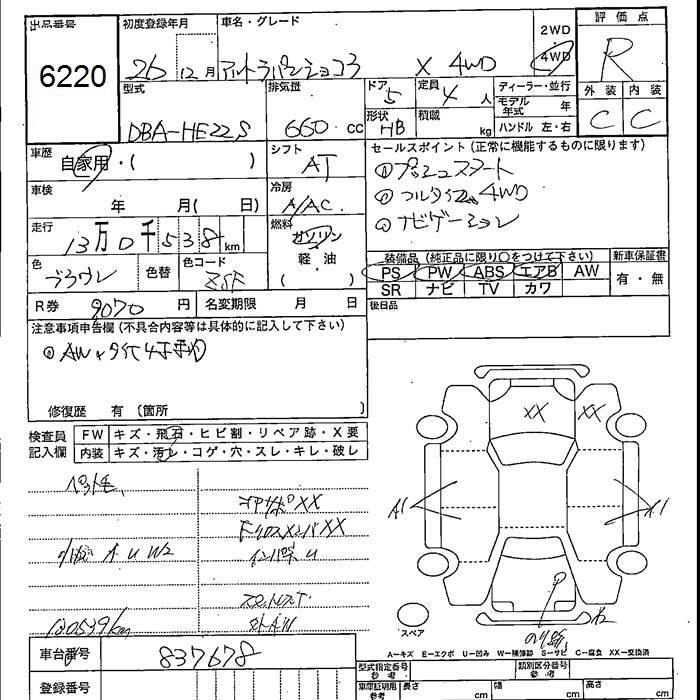 出品番号
6220
初度登録年月
26 12月
車名・グレード
アルトラパンショコラ X 4WD
2WD
4WD
評価点
R
外装 内装
C C
型式
DBA-HE22S
排気量
660 cc
ドア
5
定員
4 人
形状
HB
積載
kg
ディーラー・並行
モデル年式 年
ハンドル 左・右
車歴
自家用・( )
シフト
AT
セールスポイント (正常に機能するものに限ります)
①プッシュスタート
②フルタイム4WD
③ナビゲーション
車検
年 月( 日)
冷房
A/AC
走行
13万0千538 km
燃料
ガソリン
軽・油
( )
色
ブラウン
色替
色コード
ZSF
装備品 (純正品に限り○をつけて下さい)
PS PW ABS エアB AW
SR ナビ TV カワ
新車保証書
有・無
R券 9070 円
名変期限 月 日
後日品
注意事項申告欄 (不具合内容等は具体的に記入して下さい)
修復歴 有 (箇所 )
検査員
記入欄
FW キズ・飛石・ヒビ割・リペア跡・X要
内装 キズ・汚レ・コゲ・穴・スレ・キレ・破レ
ペット毛
コアサポXX
FクロスメンバXX
A U W2
インパネ U
130539km
XX XX
A1 A1
スペア
A-キズ E-エクボ U-凹み W-補修跡 S-サビ C-腐食 XX-交換済
車台番号
837678
登録番号
型式指定番号
参考
類別区分番号
参考
車庫証明用
参考
長さ cm
幅 cm
高さ cm